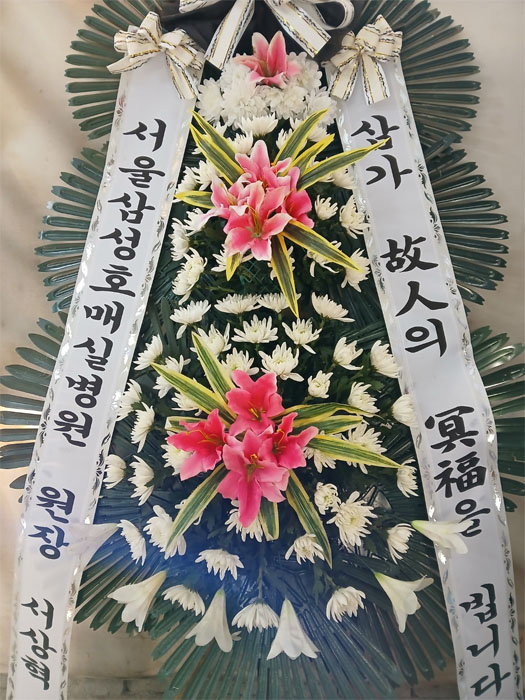 서울삼성호매실병원 원장 서상혁
삼가 故人의 冥福을 빕니다